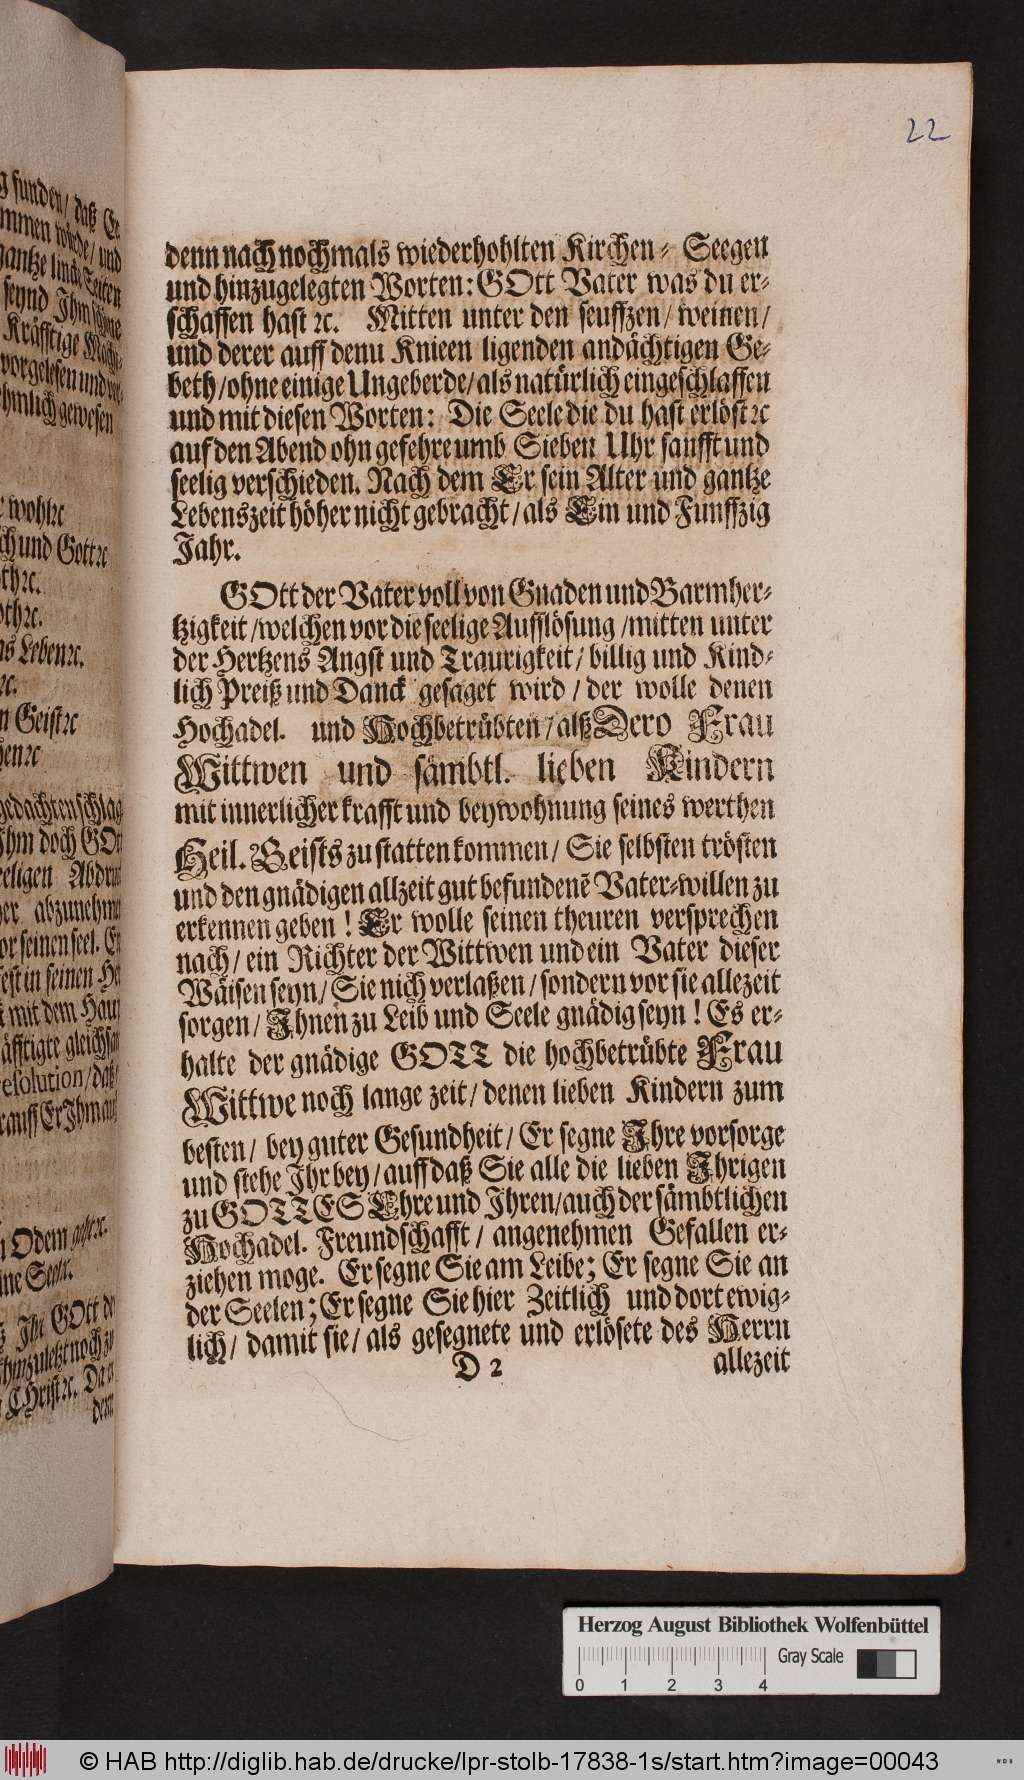 22
denn nach nochmals wiederhohlten Kirchen-Seegen
und hinzugelegten Worten: GOtt Vater was du er-
schaffen hast ꝛc. Mitten unter den seuffzen / weinen /
und derer auff denn Knieen ligenden andächtigen Ge-
beth / ohne einige Ungeberde / als natürlich eingeschlaffen
und mit diesen Worten: Die Seele die du hast erlöst ꝛc
auf den Abend ohn gefehre umb Sieben Uhr sanfft und
seelig verschieden. Nach dem Er sein Alter und gantze
Lebenszeit höher nicht gebracht / als Ein und Funffzig
Jahr.
GOtt der Vater voll von Gnaden und Barmher-
tzigkeit / welchen vor die seelige Aufflösung / mitten unter
der Hertzens Angst und Traurigkeit / billig und Kind-
lich Preiß und Danck gesaget wird / der wolle denen
Hochadel. und Hochbetrübten / alß Dero Frau
Wittwen und sämbtl. lieben Kindern
mit innerlicher krafft und beywohnung seines werthen
Heil. Geists zu statten kommen / Sie selbsten trösten
und den gnädigen allzeit gut befundenē Vater-willen zu
erkennen geben ! Er wolle seinen theuren versprechen
nach / ein Richter der Wittwen und ein Vater dieser
Wäisen seyn / Sie nich verlaßen / sondern vor sie allezeit
sorgen / Ihnen zu Leib und Seele gnädig seyn ! Es er-
halte der gnädige GOTT die hochbetrübte Frau
Wittwe noch lange zeit / denen lieben Kindern zum
besten / bey guter Gesundheit / Er segne Ihre vorsorge
und stehe Ihr bey / auff daß Sie alle die lieben Ihrigen
zu GOTTES Ehre und Ihren / auch der sämbtlichen
Hochadel. Freundschafft / angenehmen Gefallen er-
ziehen moge. Er segne Sie am Leibe; Er segne Sie an
der Seelen; Er segne Sie hier Zeitlich und dort ewig-
lich / damit sie / als gesegnete und erlösete des Herrn
D 2
allezeit
Herzog August Bibliothek Wolfenbüttel
Gray Scale
0 1 2 3 4
© HAB http://diglib.hab.de/drucke/lpr-stolb-17838-1s/start.htm?image=00043